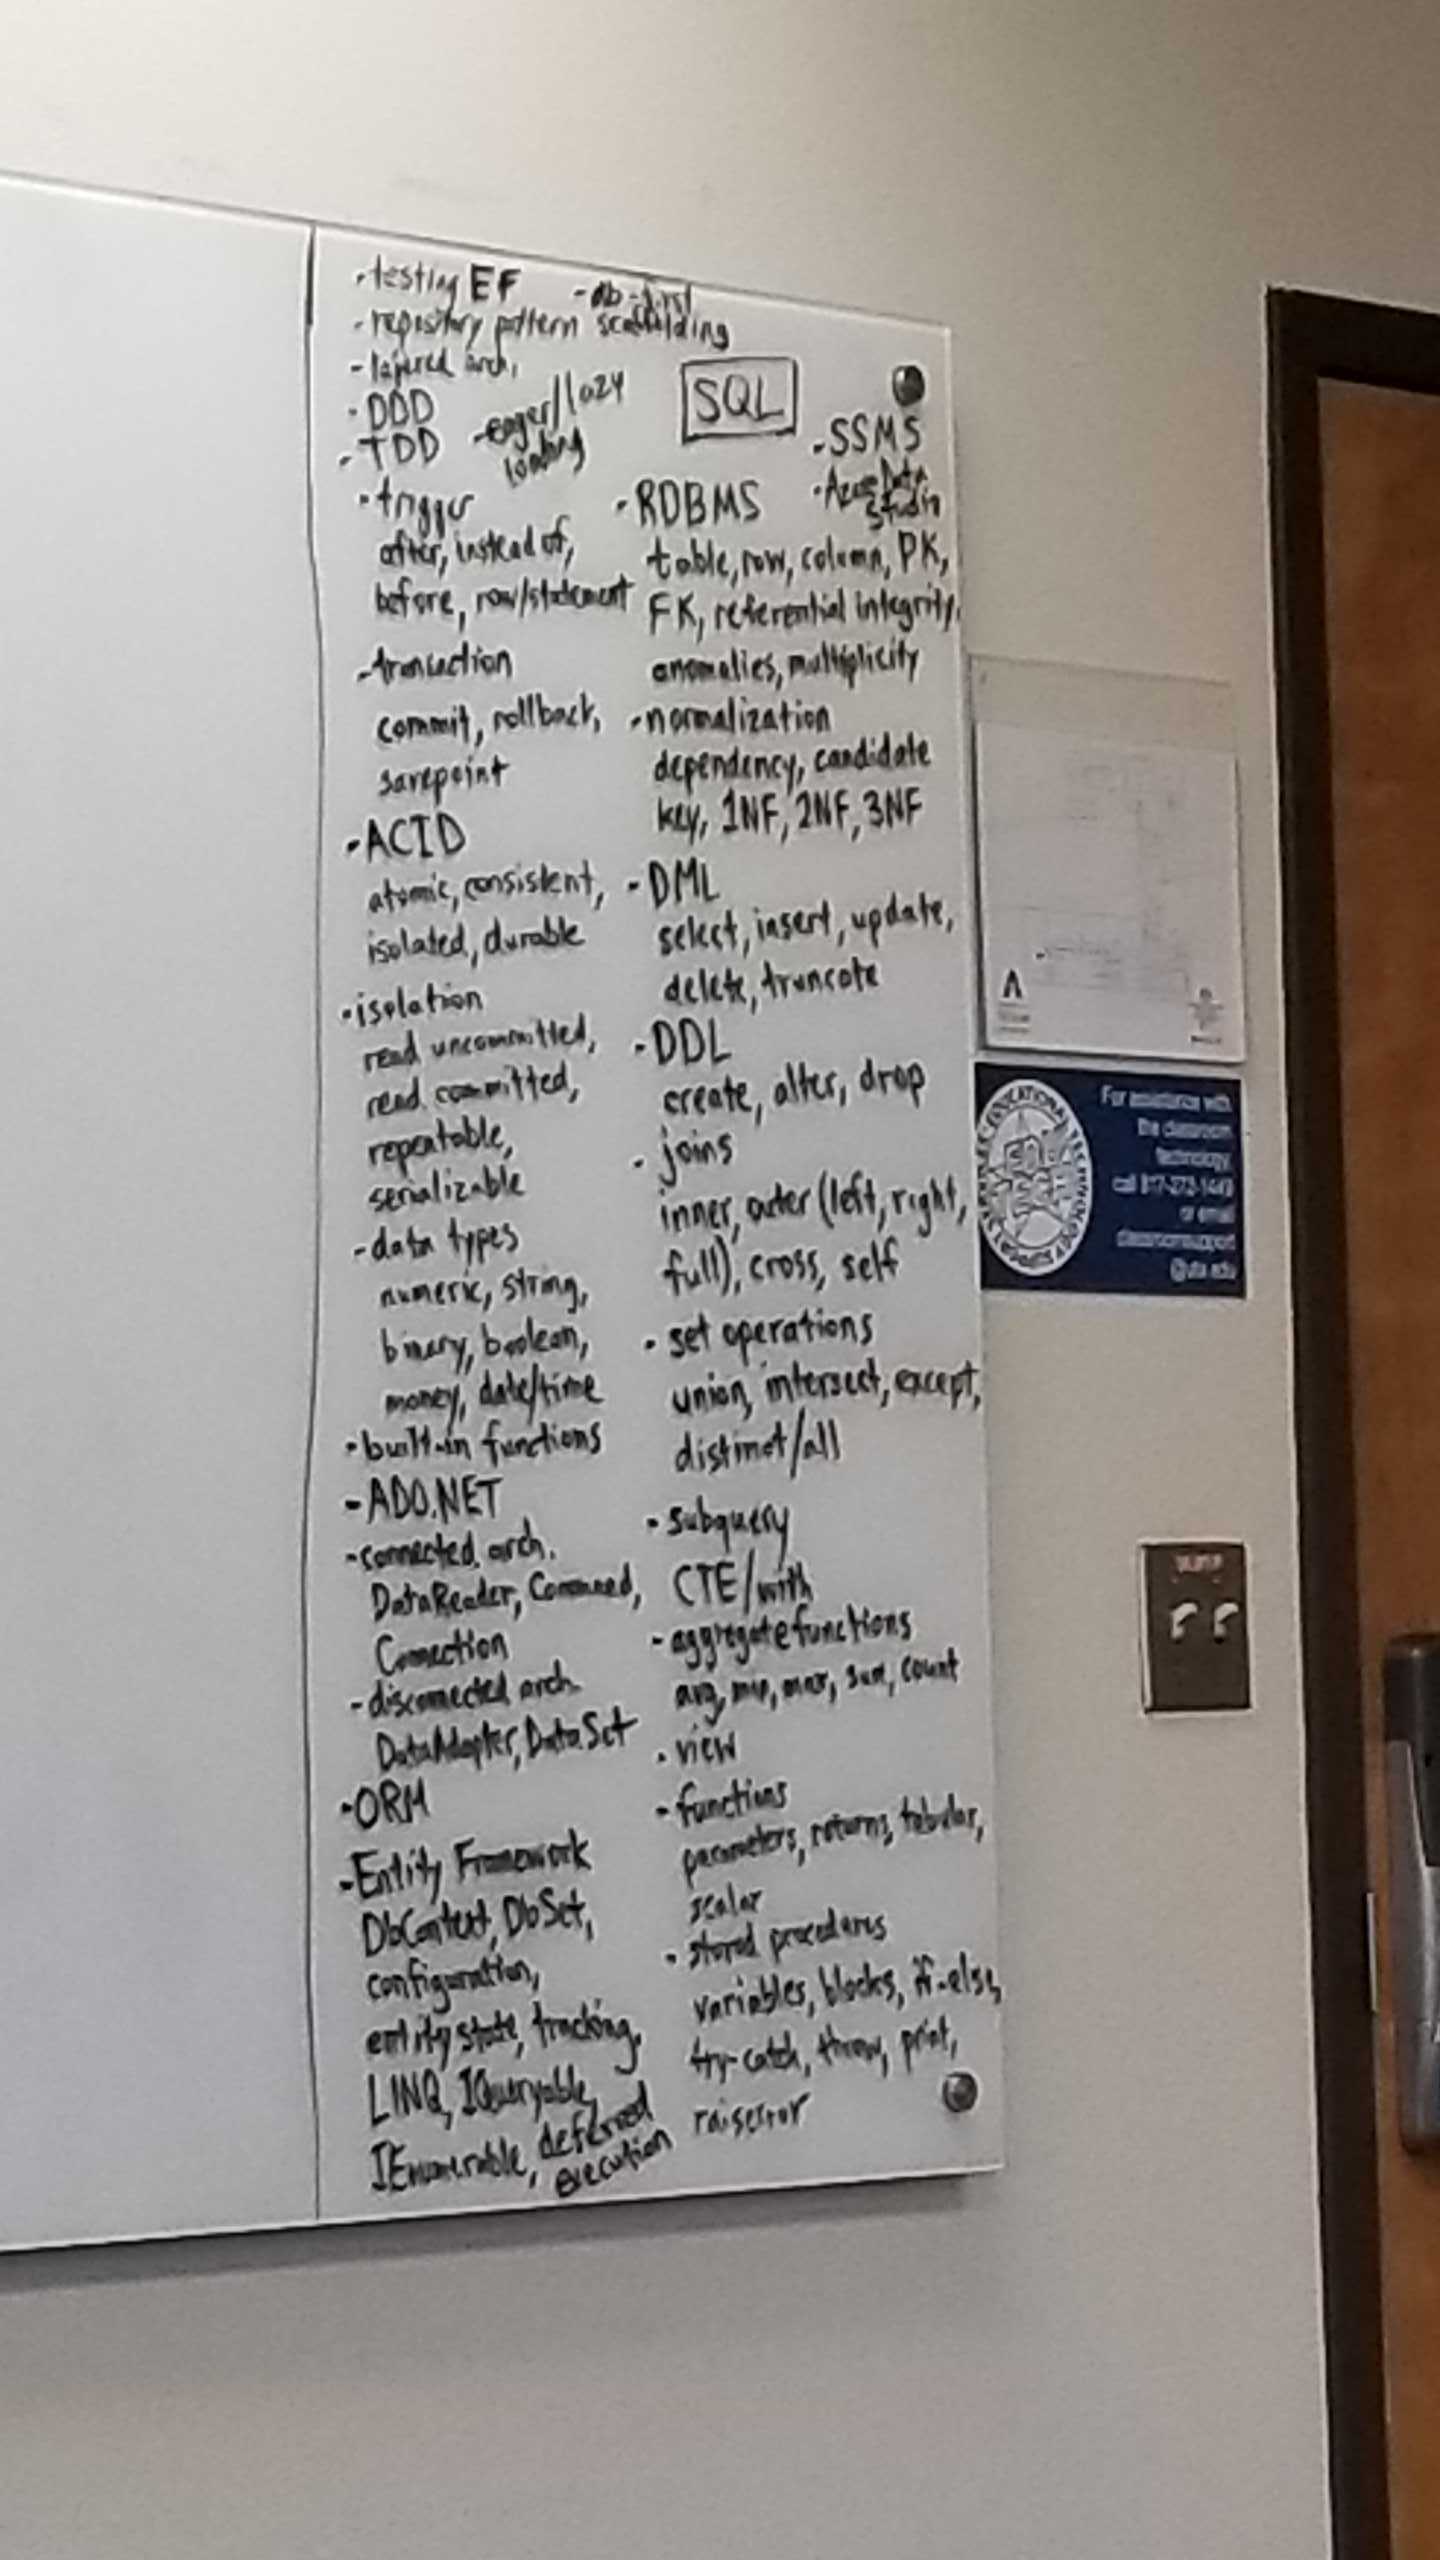 - testing EF
- db-first
scaffolding
- repository pattern
- layered arch.
- DDD
- TDD
- eager/lazy
loading
- trigger
after, instead of,
before, row/statement
- transaction
commit, rollback,
savepoint
- ACID
atomic, consistent,
isolated, durable
- isolation
read uncommitted,
read committed,
repeatable,
serializable
- data types
numeric, string,
binary, boolean,
money, date/time
- built-in functions
- ADO.NET
- connected arch.
DataReader, Command,
Connection
- disconnected arch.
DataAdapter, DataSet
- ORM
- Entity Framework
DbContext, DbSet,
configuration,
entity state, tracking,
LINQ, IQueryable,
IEnumerable, deferred
execution
SQL
- SSMS
- Azure Data
Studio
- RDBMS
table, row, column, PK,
FK, referential integrity,
anomalies, multiplicity
- normalization
dependency, candidate
key, 1NF, 2NF, 3NF
- DML
select, insert, update,
delete, truncate
- DDL
create, alter, drop
- joins
inner, outer (left, right,
full), cross, self
- set operations
union, intersect, except,
distinct/all
- subquery
CTE/with
- aggregate functions
avg, min, max, sum, count
- view
- functions
parameters, returns, tabular,
scalar
- stored procedures
variables, blocks, if-else,
try-catch, throw, print,
raiserror
For assistance with
the classroom
technology,
call 817-272-1443
or email
classroomsupport
@uta.edu